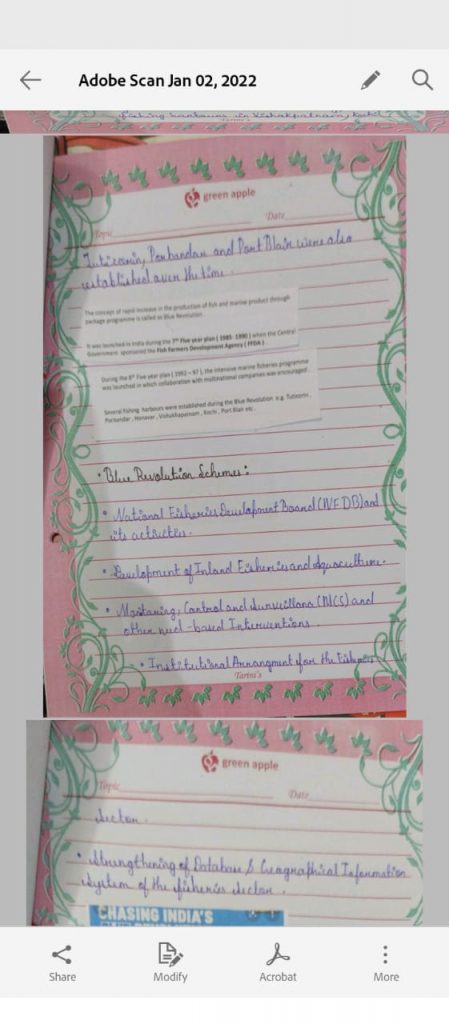 Adobe Scan Jan 02, 2022
Fishing harbours in Vishakpatnam, Kochi
green apple
Topic
Date
Tuticorin, Porbandar and Port Blair were also
established over the time.
The concept of rapid increase in the production of fish and marine product through
package programme is called as Blue Revolution.
It was launched in India during the 7th Five year plan ( 1985- 1990 ) when the Central
Government sponsored the Fish Farmers Development Agency ( FFDA ) .
During the 8th Five year plan ( 1992 – 97 ), the intensive marine fisheries programme
was launched in which collaboration with multinational companies was encouraged .
Several fishing harbours were established during the Blue Revolution e.g. Tuticorin ,
Porbandar , Honavar , Vishakhapatnam , Kochi , Port Blair etc .
• Blue Revolution Schemes:
• National Fisheries Development Board (NFDB) and
its activities.
• Development of Inland Fisheries and Aquaculture.
• Control and (MCS) and
other need-based Interventions.
• Institutional Arrangment for the fisheries
Tarini's
green apple
Topic
Date
sector.
• Strengthening of Database & Geographical Information
System of the fisheries sector.
CHASING INDIA'S
Share
Modify
Acrobat
More